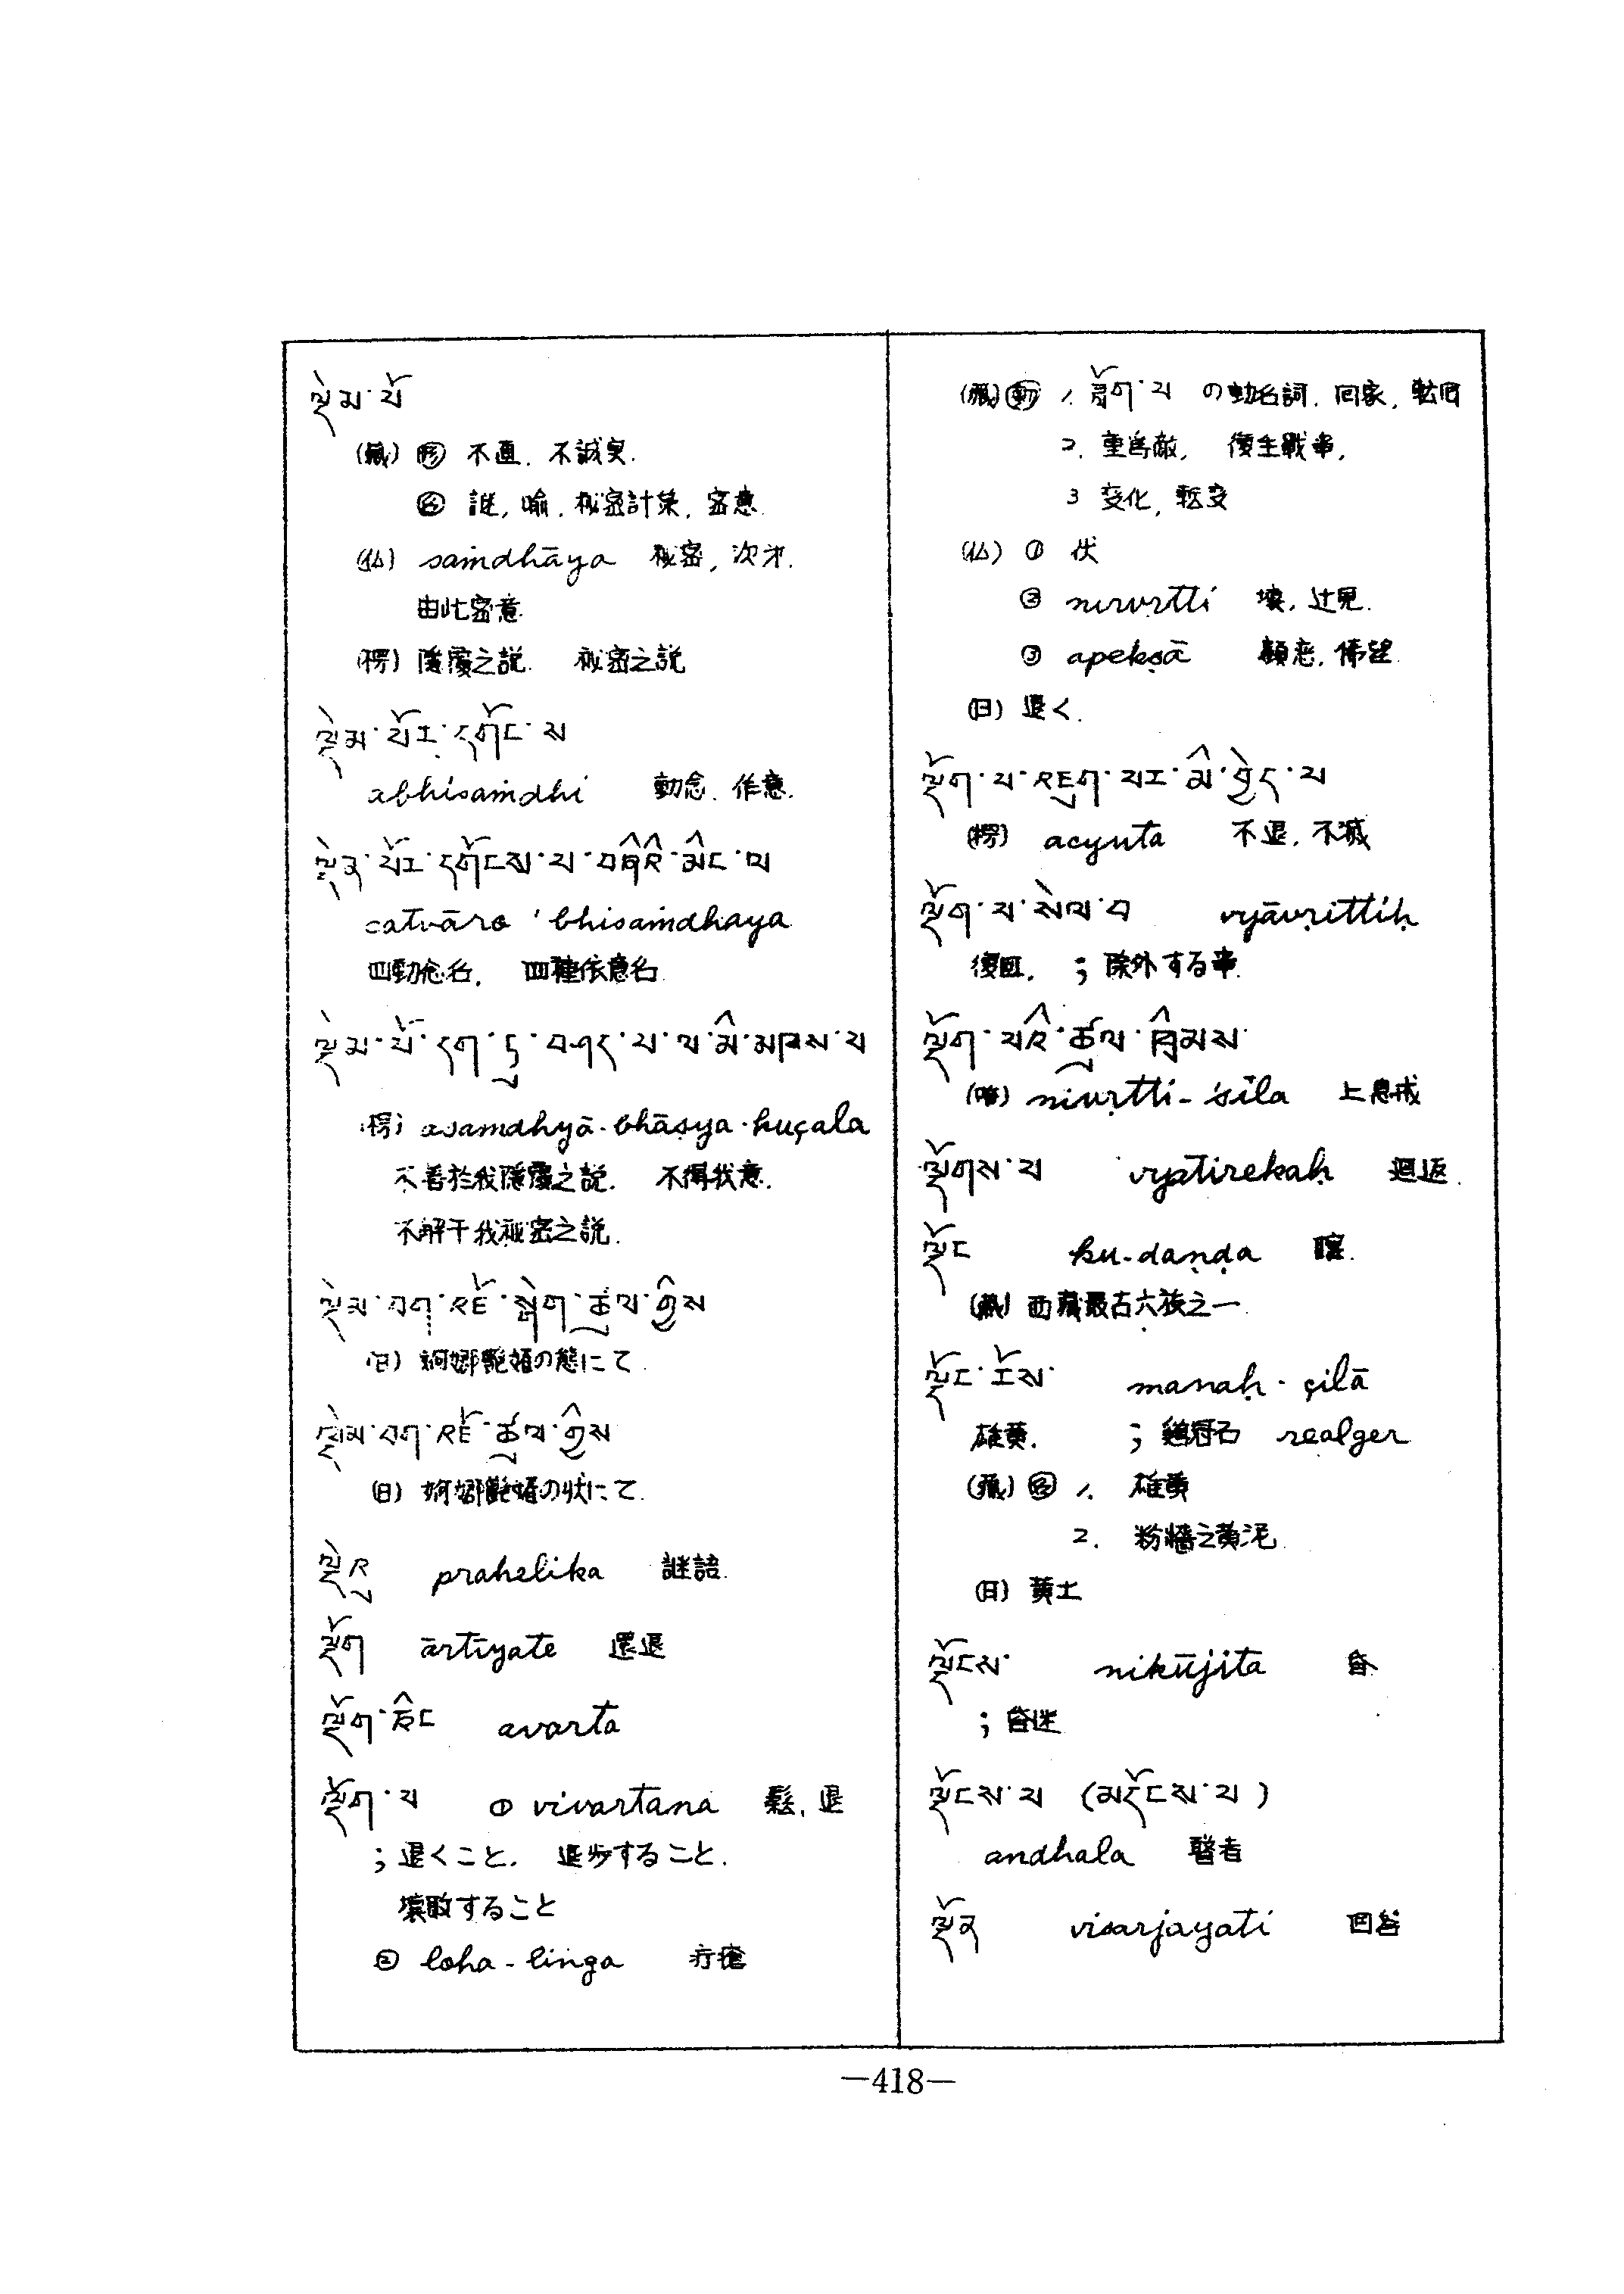 ལྡེམ་པོ
(藏) 形 不直. 不誠実.
名 謎, 喻. 秘密計策, 密意.
(仏) saṁdhāya 秘密, 次第.
由此密意.
(楞) 隱覆之説. 秘密之説
ལྡེམ་པོར་དགོང་ས
abhisaṁdhi 動念. 作意.
ལྡེམ་པོར་དགོངས་པ་བཞིའི་མིང་ལ
catvāro 'bhisaṁdhaya
四動念名, 四種依意名.
ལྡེམ་པོ་དག་ཏུ་བཤད་པ་ལ་མི་མཁས་པ
(楞) asamdhyā-bhāṣya-kuçala
不善於我隱覆之説. 不得我意.
不解于我秘密之説.
ལྡེམ་བག་འཛོ་སྒེག་ཚུལ་གྱིས
(日) 婀娜艶婿の態にて.
ལྡེམ་བག་འཛོ་ཚུལ་གྱིས
(日) 婀娜艶婿の状にて.
ལྡེའུ prahelika 謎語.
ལྡོག ārtīyate 還退
ལྡོག་ཅིང avarta
ལྡོག་པ ① vivartana 鬆, 退
; 退くこと. 退歩すること.
壊敗すること
② loha-linga 疔瘡
(藏) 動 1. ལྡོག་པ の動名詞. 回家, 転回
2. 重為敵, 復生戰事,
3 変化, 転変
(仏) ① 伏
② nirvṛtti 壊, 辻見.
③ apekṣā 顧恋, 悕望.
(日) 退く.
ལྡོག་པ་འཇུག་པར་མི་བྱེད་པ
(楞) acyuta 不退, 不滅
ལྡོག་པ་སེལ་བ vyāvṛittiḥ
復回, ; 除外する事.
ལྡོག་པའི་ཚུལ་ཁྲིམས་
nivṛtti-śīla 上息戒
ལྡོགས་པ vyatirekaḥ 廻返.
ལྡོང ku-daṇḍa 瞎.
(藏) 西藏最古六族之一.
ལྡོང་རོས་ manaḥ-çilā
雄黄. ; 鶏冠石 realger
(藏) 名 1. 雄黄
2. 粉牆之黄泥.
(日) 黄土
ལྡོངས་ nikūjita 昏
; 昏迷
ལྡོངས་པ (མདོངས་པ)
andhala 瞽者
ལྡོན visarjayati 回答
—418—